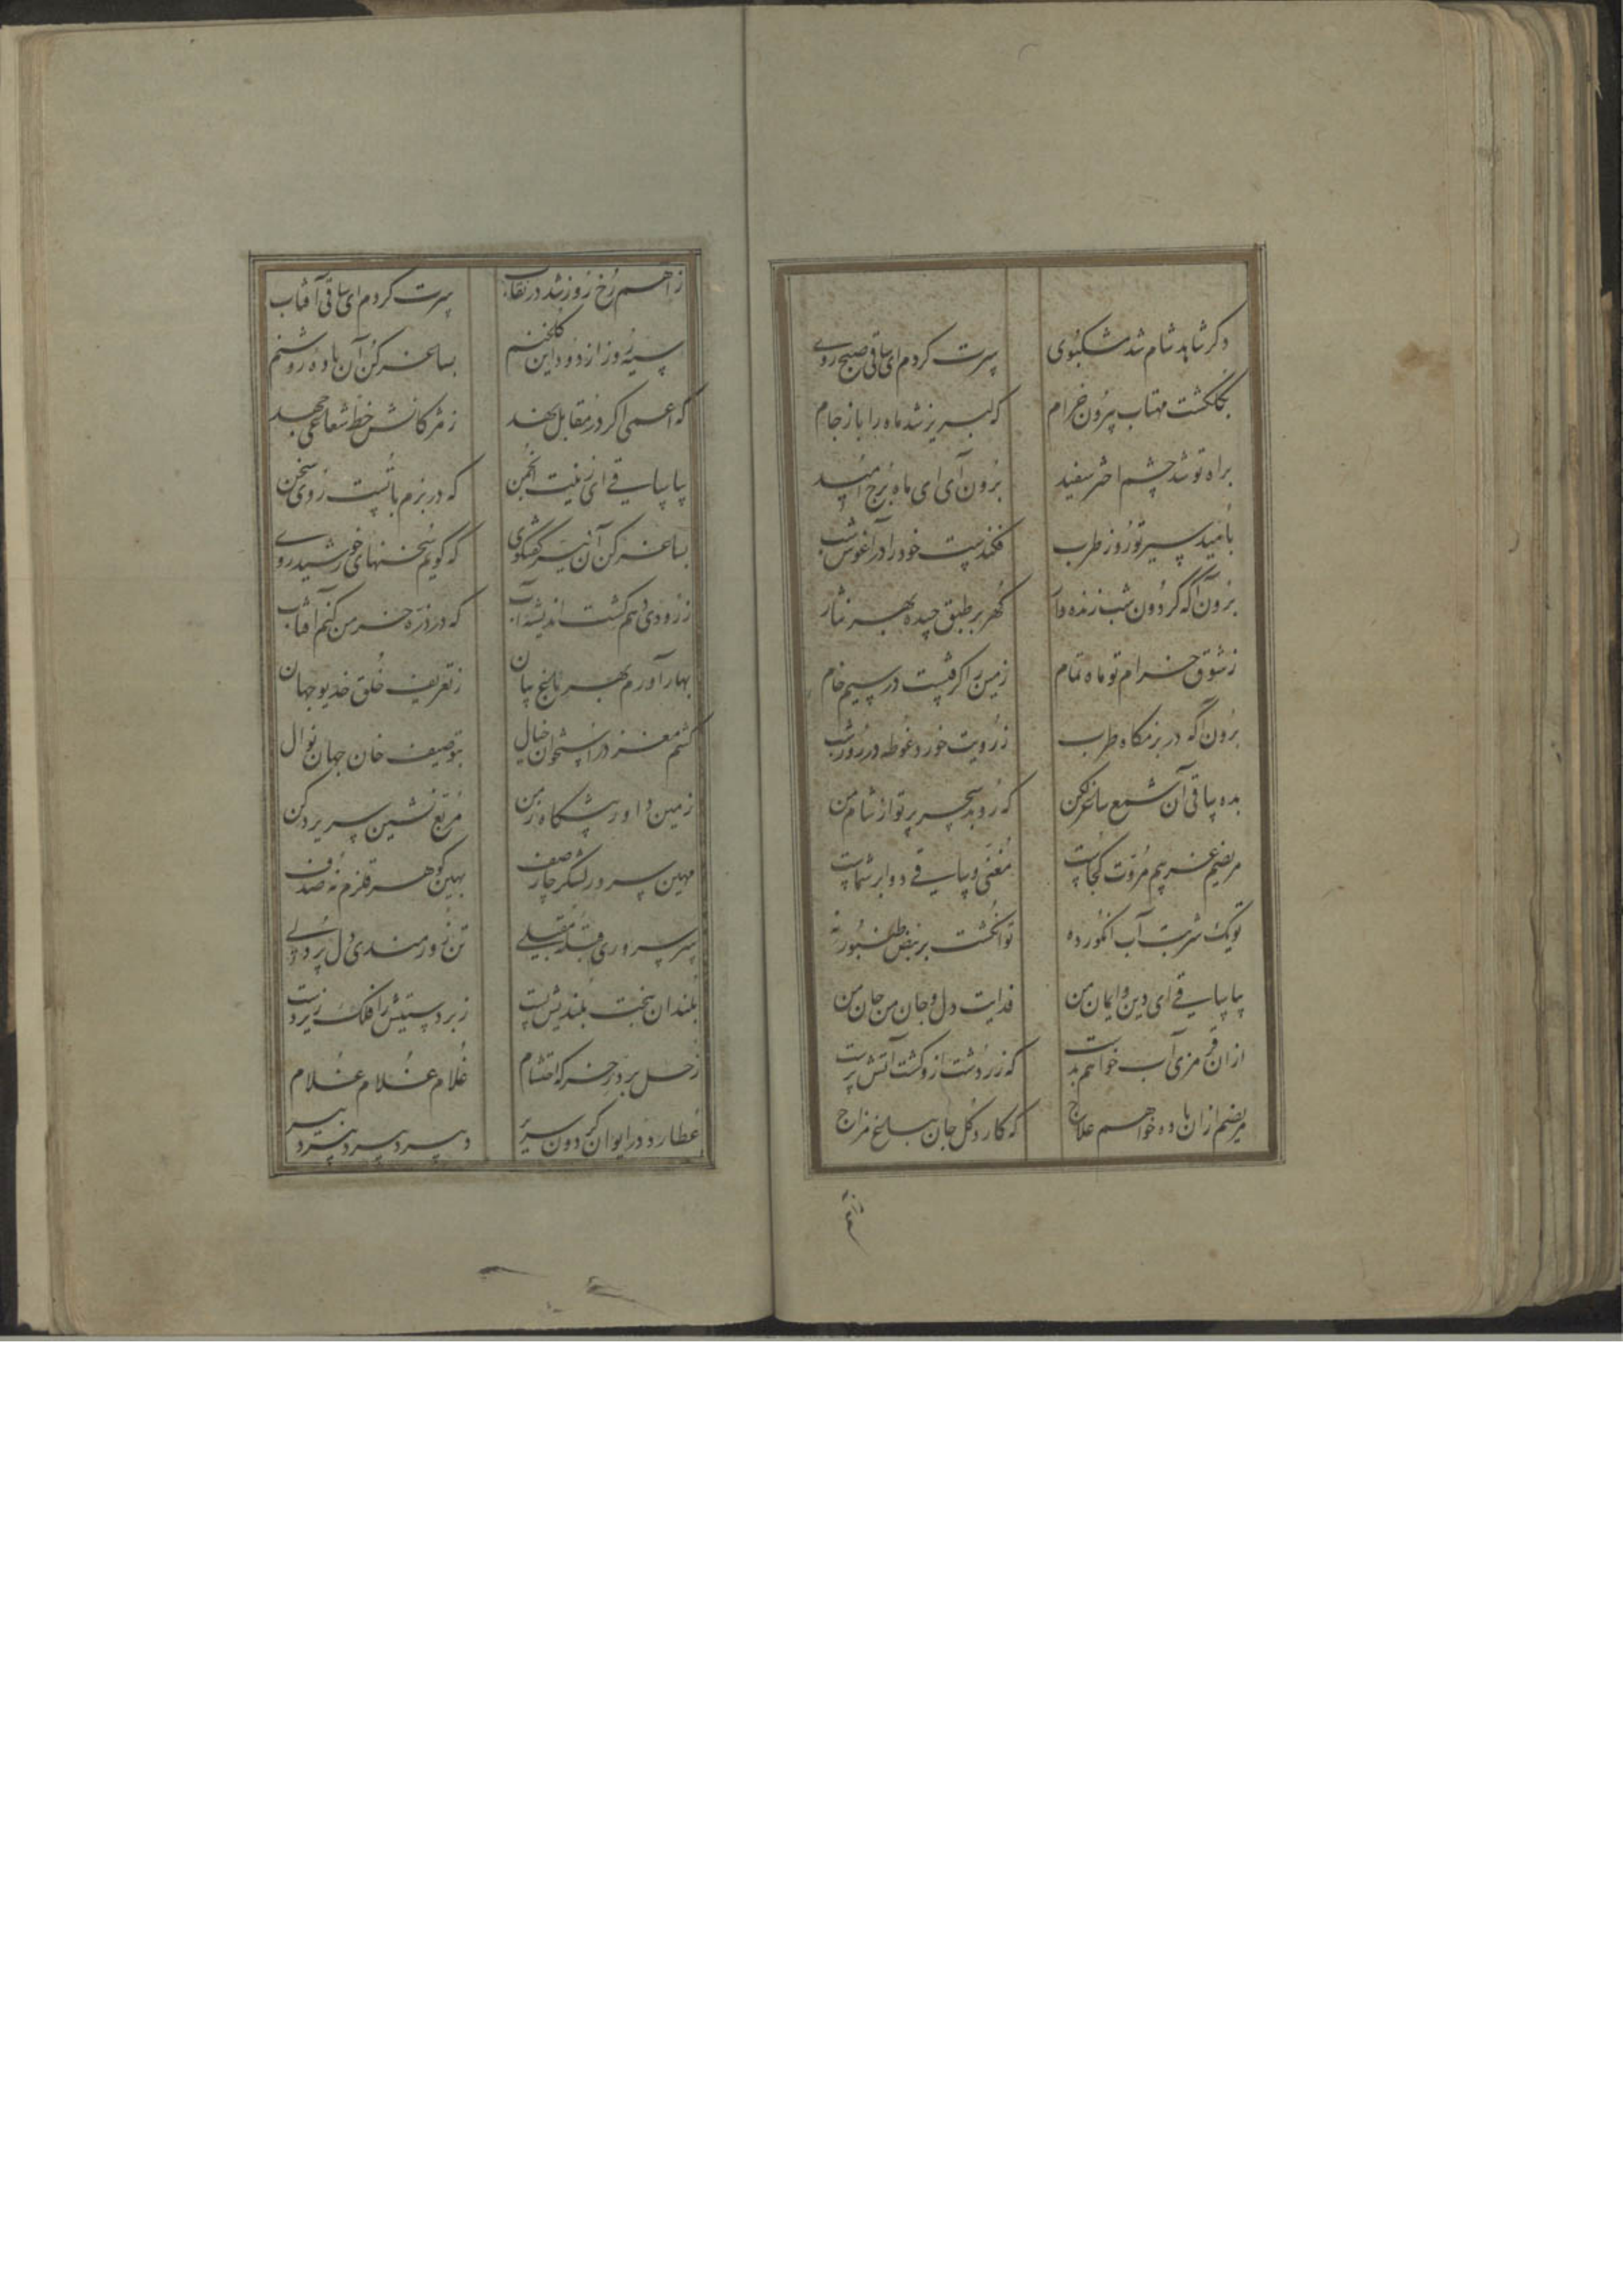 دکر شاهد شام شد مشکبوی سرت کردم ای ساقی صبح روی
بکلکشت مهتاب بیرون خرام که لبریز شد ماه را باز جام
براه تو شد چشم اختر سفید برون آی ای ماه برج امید
بامید سیر تو روز طرب فکندست خود را در آغوش شب
برون آ که کردون شب زنده دار کهر بر طبق چیده بهر نثار
ز شوق خرام تو ماه تمام زمین را کرفتست در سیم خام
برون آ که در بزمکاه طرب ز رویت خورد غوطه در روز شب
بده ساقی آن شمع ساغر لکن که روید سحر پرتو از شام من
مریضم غریبم مروت کجاست مغنی و ساقی دوا بر شماست
تو یک شربت آب انکور ده تو انکشت بر نبض طنبور نه
بیا ساقی ای دین و ایمان من فدایت دل و جان من جان من
ازان قرمزی آب خواهم بدست که زردشت ازو کشت آتش پرست
مریضم ازان باده خواهم علاج که کارد کل جان بباغ مزاج
ز اهم رخ روز شد در نقاب سرت کردم ای ساقی آفتاب
سیه روز از دود این کلخنم بساغر کن آن باده روشنم
که اعمی اکر در مقابل نهد ز مژکانش خط شعاعی جهد
بیا ساقی ای زینت انجمن که در بزم ما تست روی سخن
بساغر کن آن نیر کفتکوی که کویم سخنهای خورشید روی
ز زودی دهم کشت اندیشه آب که در ذره خرمن کنم آفتاب
بهار آورم بهر باغ بیان ز تعریف خلق خدیو جهان
کشم مغز در استخوان خیال بتوصیف خان جهان نوال
زمین داور پیشکاه زمن مربع نشین سریر دکن
مهین سرور لشکر چار صف بهین کوهر قلزم نه صدف
سر سروری قبله مقبلی تن زورمندی دل پردلی
بلندان بخت بلندیش پست زبردستیش را فلک زیردست
زحل بر در خرکه احتشام غلام غلام غلام غلام
عطارد در ایوان کردون سریر دبیر دبیر دبیر دبیر